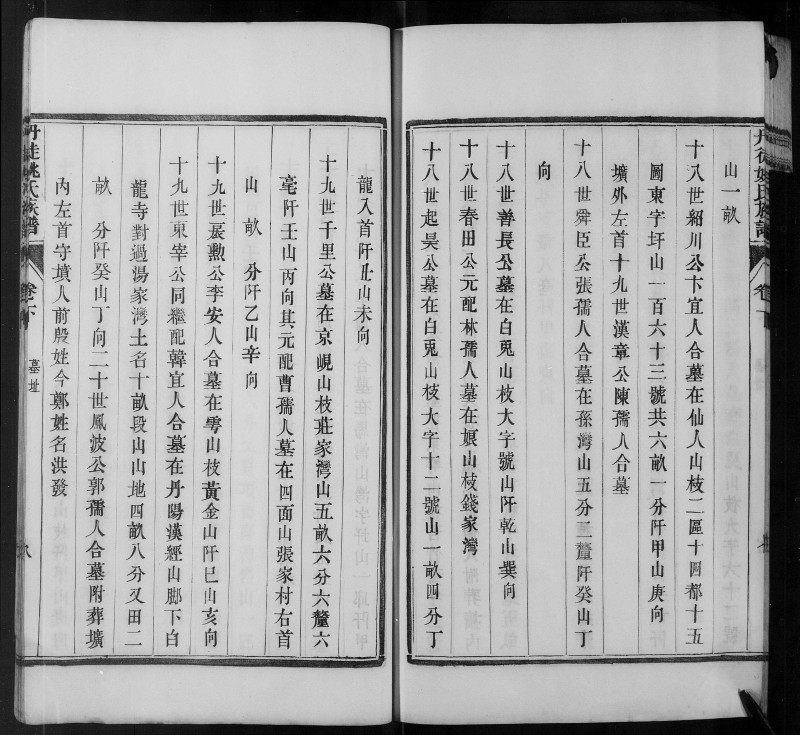 山一畝
十八世紹川公卞宜人合墓在仙人山枝二區十四都十五
圖東字圩山一百六十三號共六畝一分阡甲山庚向
壙外左首十九世漢章公陳孺人合墓
十八世舜臣公張孺人合墓在孫灣山五分二釐阡癸山丁
向
十八世善長公墓在白兎山枝大字號山阡乾山巽向
十八世春田公元配林孺人墓在娘山枝錢家灣
十八世起昊公墓在白兎山枝大字十二號山一畝四分丁
龍入首阡丑山未向
十九世千里公墓在京峴山枝莊家灣山五畝六分六釐六
毫阡壬山丙向其元配曹孺人墓在四面山張家村右首
山畝 分阡乙山辛向
十九世宸勲公李安人合墓在雩山枝黃金山阡巳山亥向
十九世東宰公同繼配韓宜人合墓在丹陽漢經山脚下白
龍寺對過湯家灣土名十畝段山山地四畝八分又田二
畝 分阡癸山丁向二十世鳳波公郭孺人合墓附葬壙
內左首守墳人前殷姓今鄭姓名洪發
丹徒姚氏族譜
卷下
墓址